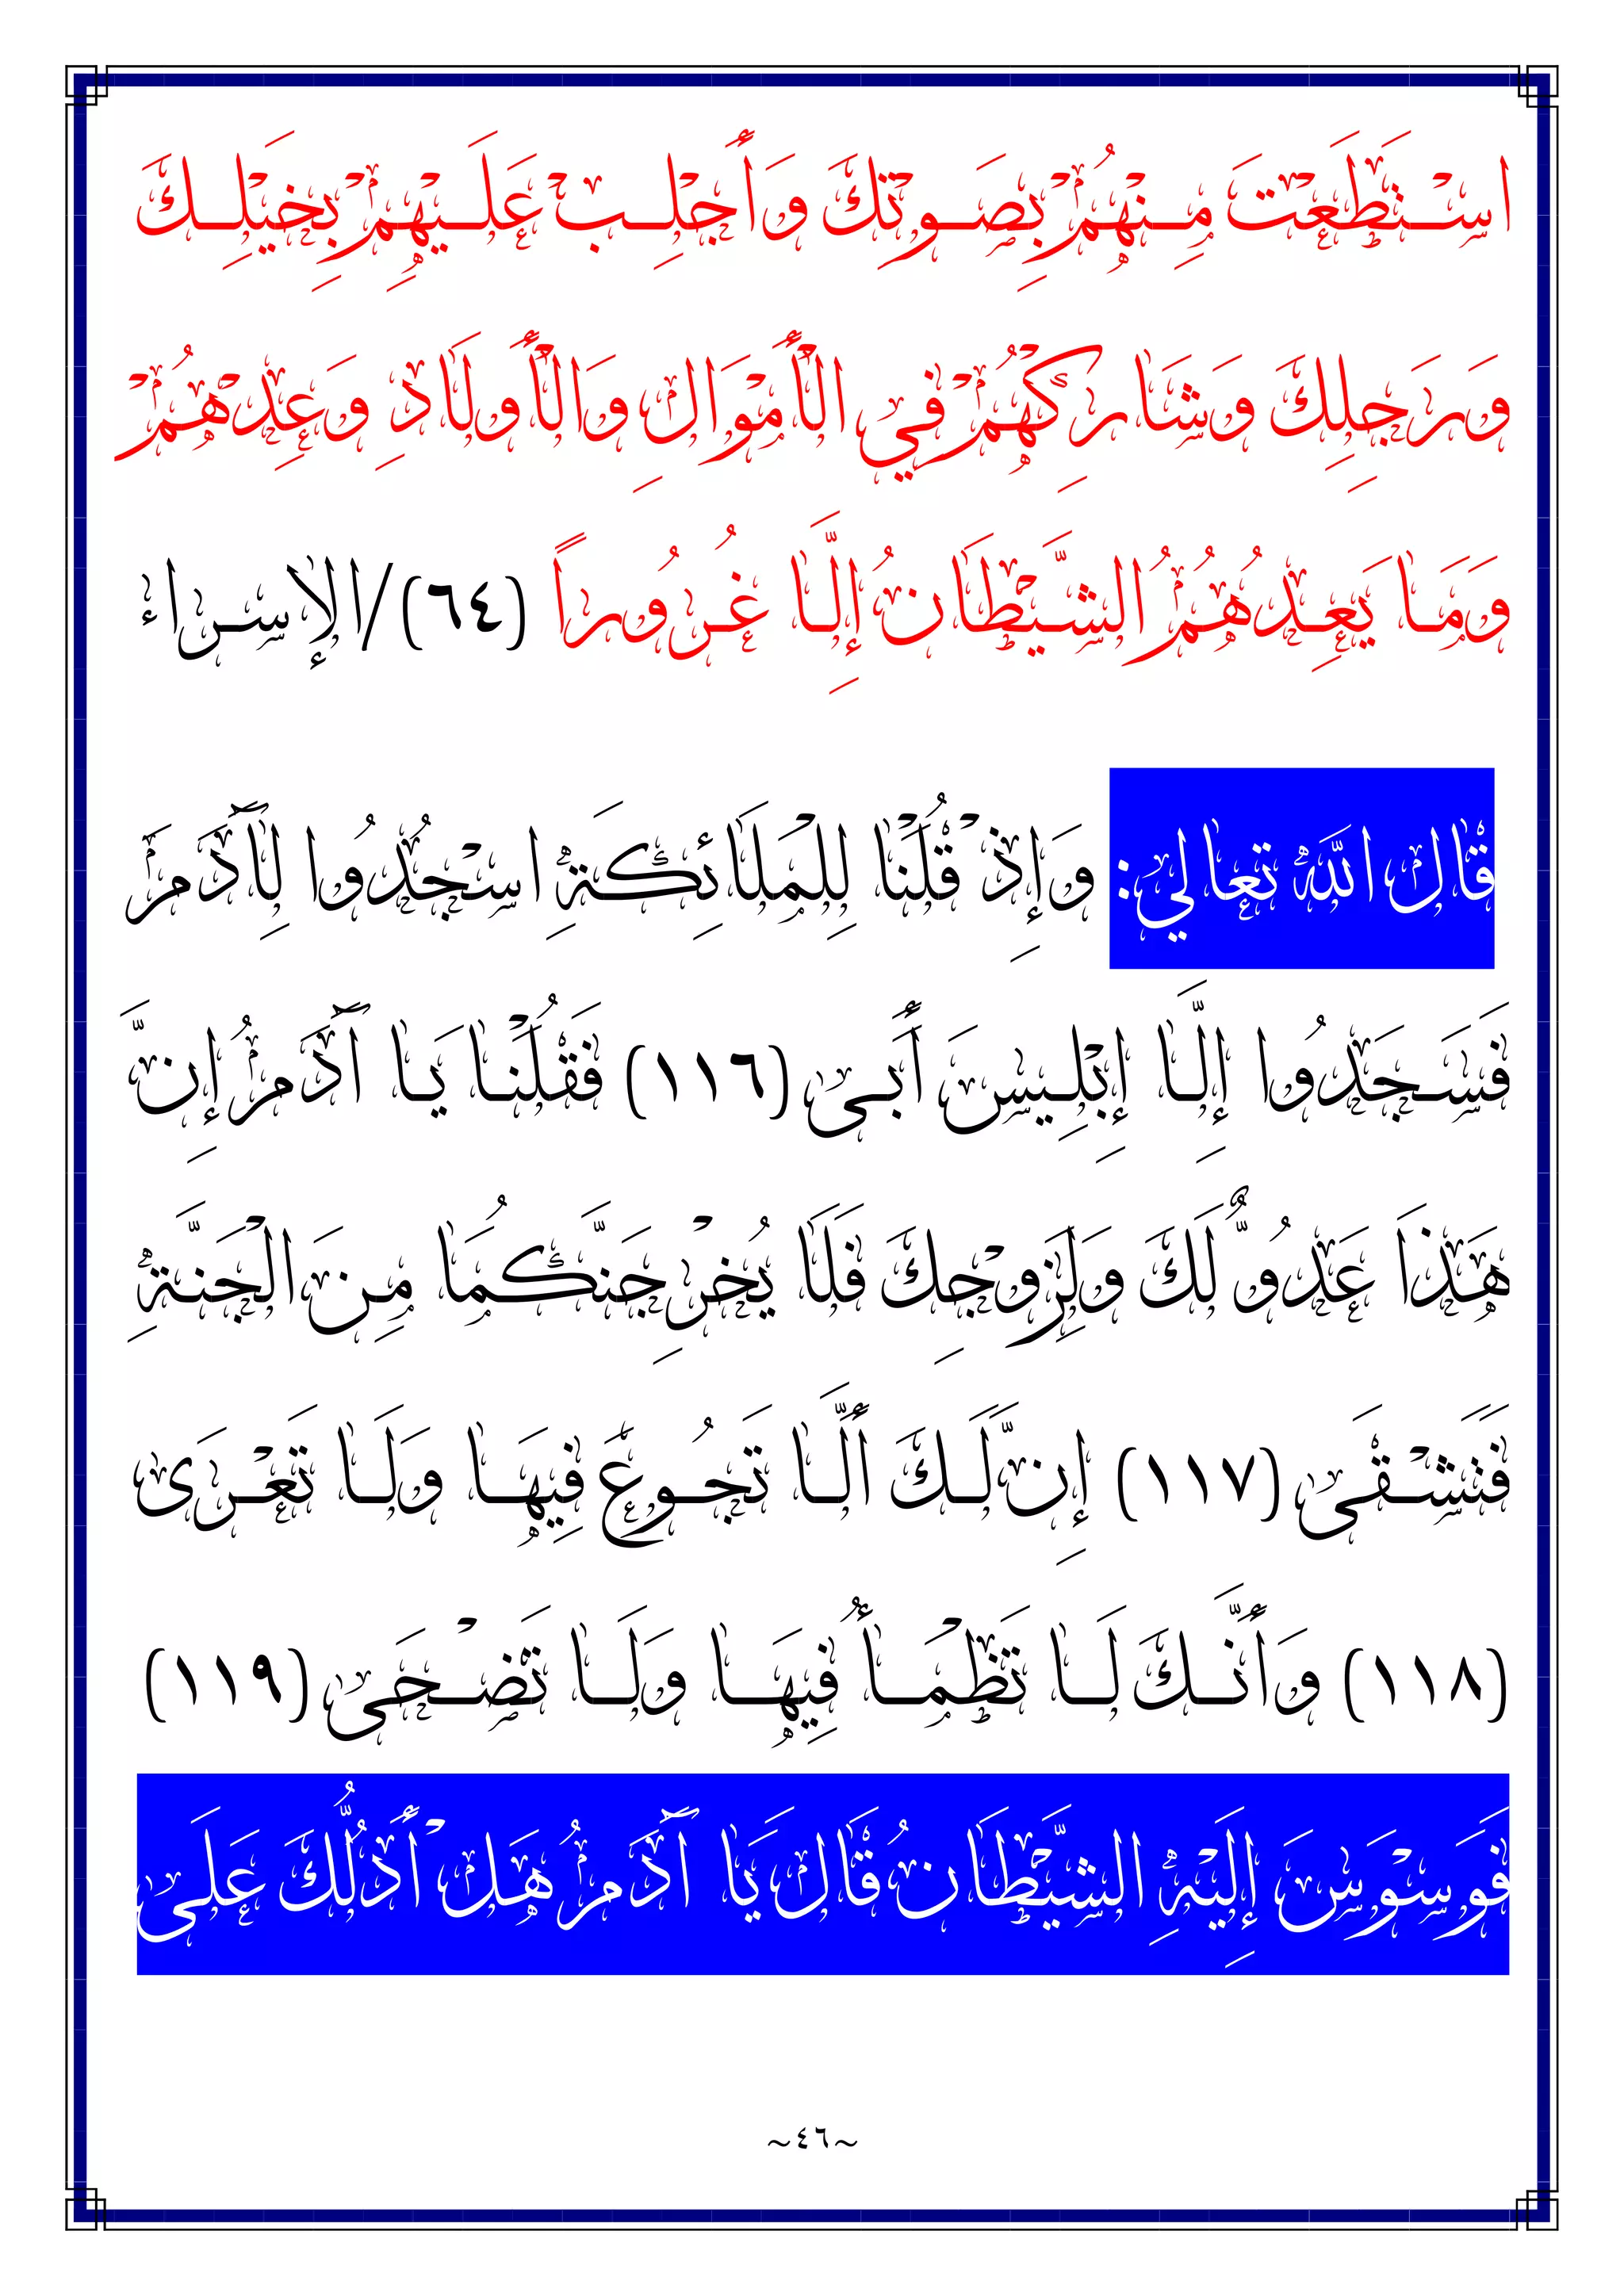 اسْتَطَعْتَ مِنْهُمْ بِصَوْتِكَ وَأَجْلِبْ عَلَيْهِمْ بِخَيْلِكَ
وَرَجِلِكَ وَشَارِكْهُمْ فِي الْأَمْوَالِ وَالْأَوْلَادِ وَعِدْهُمْ
وَمَا يَعِدُهُمُ الشَّيْطَانُ إِلَّا غُرُوراً (٦٤)/الإسراء
قال الله تعالي: وَإِذْ قُلْنَا لِلْمَلَائِكَةِ اسْجُدُوا لِآَدَمَ
فَسَجَدُوا إِلَّا إِبْلِيسَ أَبَى (١١٦) فَقُلْنَا يَا آَدَمُ إِنَّ
هَذَا عَدُوٌّ لَكَ وَلِزَوْجِكَ فَلَا يُخْرِجَنَّكُمَا مِنَ الْجَنَّةِ
فَتَشْقَى (١١٧) إِنَّ لَكَ أَلَّا تَجُوعَ فِيهَا وَلَا تَعْرَى
(١١٨) وَأَنَّكَ لَا تَظْمَأُ فِيهَا وَلَا تَضْحَى (١١٩)
فَوَسْوَسَ إِلَيْهِ الشَّيْطَانُ قَالَ يَا آَدَمُ هَلْ أَدُلُّكَ عَلَى
~٤٦~